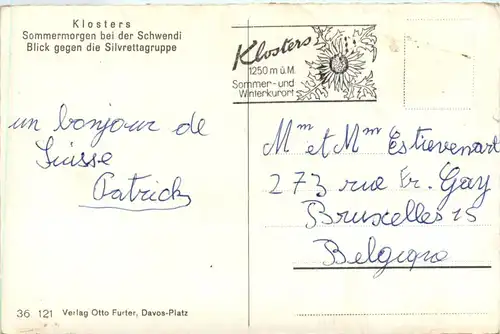 Klosters
Sommermorgen bei der Schwendi
Blick gegen die Silvrettagruppe
Klosters
1250 m ü.M.
Sommer- und
Winterkurort
un bonjour de
Suisse
Patrick
Mm et Mm Estievenart
273 rue Fr. Gay
Bruxelles 15
Belgique
36 121 Verlag Otto Furter, Davos-Platz